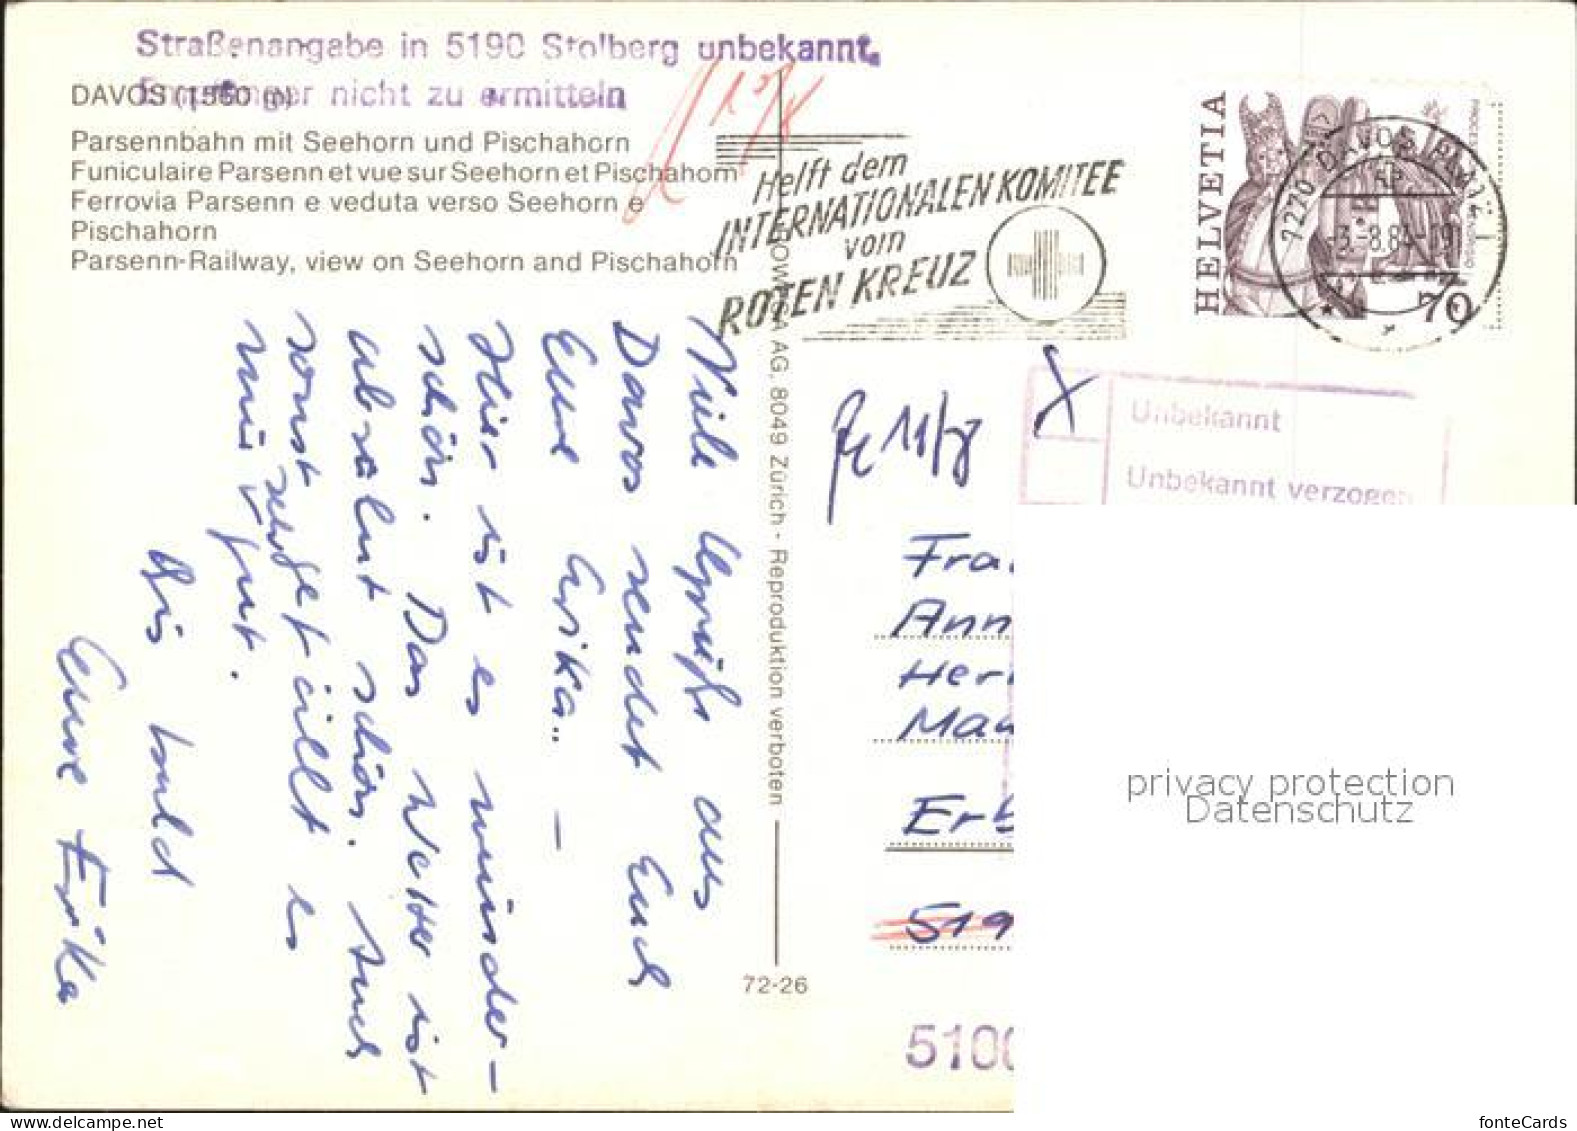 Straßenangabe in 5190 Stolberg unbekannt.
Empfänger nicht zu ermitteln
DAVOS (1560 m)
Parsennbahn mit Seehorn und Pischahorn
Funiculaire Parsenn et vue sur Seehorn et Pischahorn
Ferrovia Parsenn e veduta verso Seehorn e
Pischahorn
Parsenn-Railway, view on Seehorn and Pischahorn
Helft dem
INTERNATIONALEN KOMITEE
vom
ROTEN KREUZ
HELVETIA
70
7270 DAVOS PLATZ 1
-3.-8.84-19
Viele Grüße aus
Davos sendet Euch
Eure Erika.. –
Hier ist es wunder-
schön. Das Wetter ist
absolut schön. Auch
sonst gefällt es
mir sehr gut.
Bis bald
Eure Erika
AG, 8049 Zürich · Reproduktion verboten
72-26
11/8
Unbekannt
Unbekannt verzogen
Fra
Ann
Her
Mau
Erb
519
5100
privacy protection
Datenschutz
fonteCards